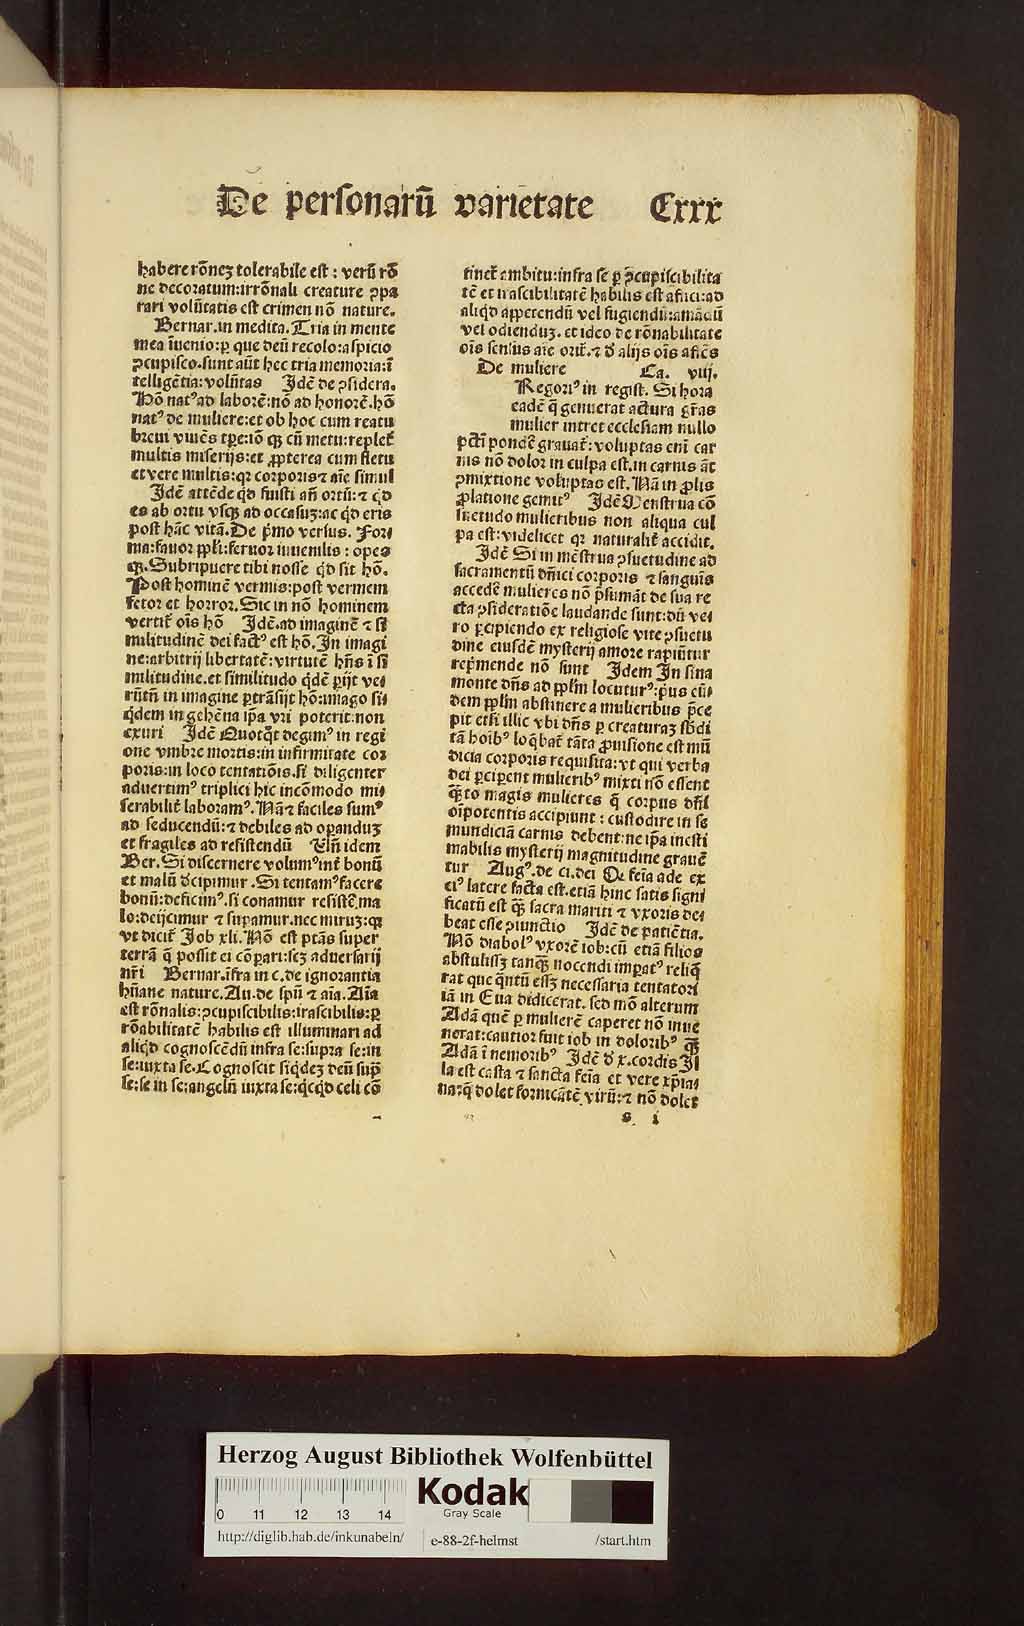 De personarū varietate Cxxx
habere rōnez tolerabile est : verū rō
ne decoratum:irrōnali creature ꝯpa
rari volūtatis est crimen nō nature.
Bernar.in medita.Tria in mente
mea īuenio:ꝑ que deū recolo:aspicio
ꝯcupisco.sunt aūt hec tria memoria:ī
telligētia:volūtas Idē de ꝯsidera.
Hō natꝰ ad laborē:nō ad honorē.hō
natꝰ de muliere:et ob hoc cum reatu
breui viuēs tꝑe:iō qꝫ cū metu:replet᷑
multis miserijs:et ꝓpterea cum fletu
et vere multis:qꝛ corporis ⁊ aīe simul
Idē attēde qd fuisti añ ortū:⁊ qd
es ab ortu vsqꝫ ad occasuꝫ:ac qd eris
post hāc vitā.De pmo versus. For⸗
ma:fauor ppli:feruor iuuenilis : opes
qꝫ.Subripuere tibi nosse qd sit hō.
Post hominē vermis:post vermem
fetor et horror.Sic in nō hominem
vertit᷑ oīs hō Idē.ad imaginē ⁊ si
militudinē dei factꝰ est hō.In imagi
ne:arbitrij libertatē:virtutē hñs ī si
militudine.et similitudo qdē perijt ve⸗
rūtñ in imagine ꝑtrāsijt hō:imago si⸗
qdem in gehēna ipa vri poterit:non
exuri Idē Quotqt degimꝰ in regi
one vmbre mortis:in infirmitate cor
poris:in loco tentatiōis.si diligenter
aduertimꝰ triplici hic incōmodo mi⸗
serabilit᷑ laboramꝰ.Nā ⁊ faciles sumꝰ
ad seducendū:⁊ debiles ad operanduꝫ
et fragiles ad resistendū Vñ idem
Ber.Si discernere volumꝰ int᷑ bonū
et malū decipimur .Si tentamꝰ facere
bonū:deficimꝰ.si conamur resistē.ma
lo:deijcimur ⁊ supamur.nec miruꝫ:qꝛ
vt dicit᷑ Job xli.Nō est ptās super
terrā q̄ possit ei cōpari:sꝫ aduersarij
nr̄i Bernar.īfra in c.de ignorantia
hūane nature.Au.de spū ⁊ aīa.Aīa
est rōnalis:ꝯcupiscibilis:irascibilis:ꝑ
rōabilitatē habilis est illuminari ad
aliqd cognoscēdū infra se:supra se:in
se:iuxta se.Cognoscit siqdeꝫ deū sup̄
se:se in se:angelū iuxta se:qcqd celi cō
tinet᷑ ambitu:infra se ꝑ ꝯcupiscibilita
tē et irascibilitatē habilis est affici:ad
aliqd appetendū vel fugiendū:amādū
vel odienduꝫ. et ideo de rōnabilitate
oīs sensus aīe orit᷑.⁊ de alijs oīs affcūs
De muliere Ca. viij.
Regoriꝰ in regist. Si hora
eadē q̄ genuerat actura grās
mulier intret ecclesiam nullo
pcti pondē grauat᷑: voluptas eni car
nis nō dolor in culpa est.in carnis āt
ꝯmixtione voluptas est. Nā in ꝓlis
ꝓlatione gemitꝰ Idē Menstrua cō
suetudo mulieribus non aliqua cul
pa est:videlicet qꝛ naturalit᷑ accidit.
Idē Si in mēstrua ꝯsuetudine ad
sacramentū dn̄ici corporis ⁊ sanguīs
accedē mulieres nō psumāt de sua re
cta ꝯsideratiōe laudande sunt:dū ve⸗
ro ꝑcipiendo ex religiose vite ꝯsuetu
dine eiusdē mysterij amore rapiūtur
repmende nō sunt Idem In sina
monte dn̄s ad pplm locuturꝰ:pus eū⸗
dem pplm abstinere a mulieribus p̄ce
pit etsi illic vbi dn̄s ꝑ creaturaꝫ sbdi
tā hoibꝰ loqbat᷑ tāta ꝓuisione est mū
dicia corporis requisita:vt qui verba
dei perciperent mulieribꝰ mixti nō essent
q̄nto magis mulieres q̄ corpus dn̄i
oīpotentis accipiunt : custodire in se
mundiciā carnis debent:ne ipa inesti
mabilis mysterij magnitudine grauē
tur Augꝰ.de ci.dei Qꝫ feīa ade ex
eiꝰ latere facta est.etiā hinc satis signi
ficatū est q̄ꝫ sacra mariti ⁊ vxoris de⸗
beat esse ꝯiunctio Idē de patiētia.
Nō diabolꝰ vxorē iob:cū etiā filios
abstulissꝫ tanq̄ꝫ nocendi imperatꝰ reliq̄
rat que q̄ntū essꝫ necessaria tentatori
iā in Eua didicerat. sed mō alterum
Adā quē ꝑ mulierē caperet nō inue
nerat:cautior fuit iob in doloribꝰ q̄ꝫ
Adā ī nemoribꝰ Idē de x.cordis Il
la est casta ⁊ sancta feīa et vere xp̄ia⸗
na:q̄ dolet fornicātē virū:⁊ nō dolet
s i
Herzog August Bibliothek Wolfenbüttel
0 11 12 13 14
Kodak
Gray Scale
http://diglib.hab.de/inkunabeln/ e-88-2f-helmst /start.htm